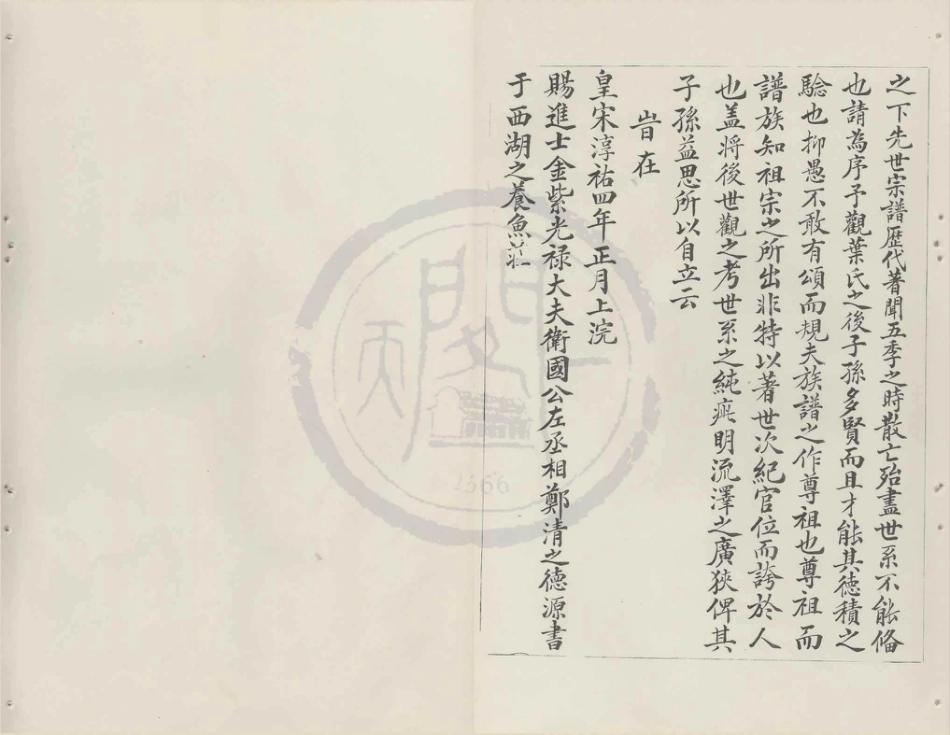 之下先世宗譜歷代著聞五季之時散亡殆盡世系不能偹
也請為序予觀葉氏之後子孫多賢而且才能其德積之
驗也抑愚不敢有頌而規夫族譜之作尊祖也尊祖而
譜族知祖宗之所出非特以著世次紀官位而誇於人
也盖將後世觀之考世系之純疵明流澤之廣狹俾其
子孫益思所以自立云
旹在
皇宋淳祐四年正月上浣
賜進士金紫光禄大夫衛國公左丞相鄭清之德源書
于西湖之養魚莊
1566